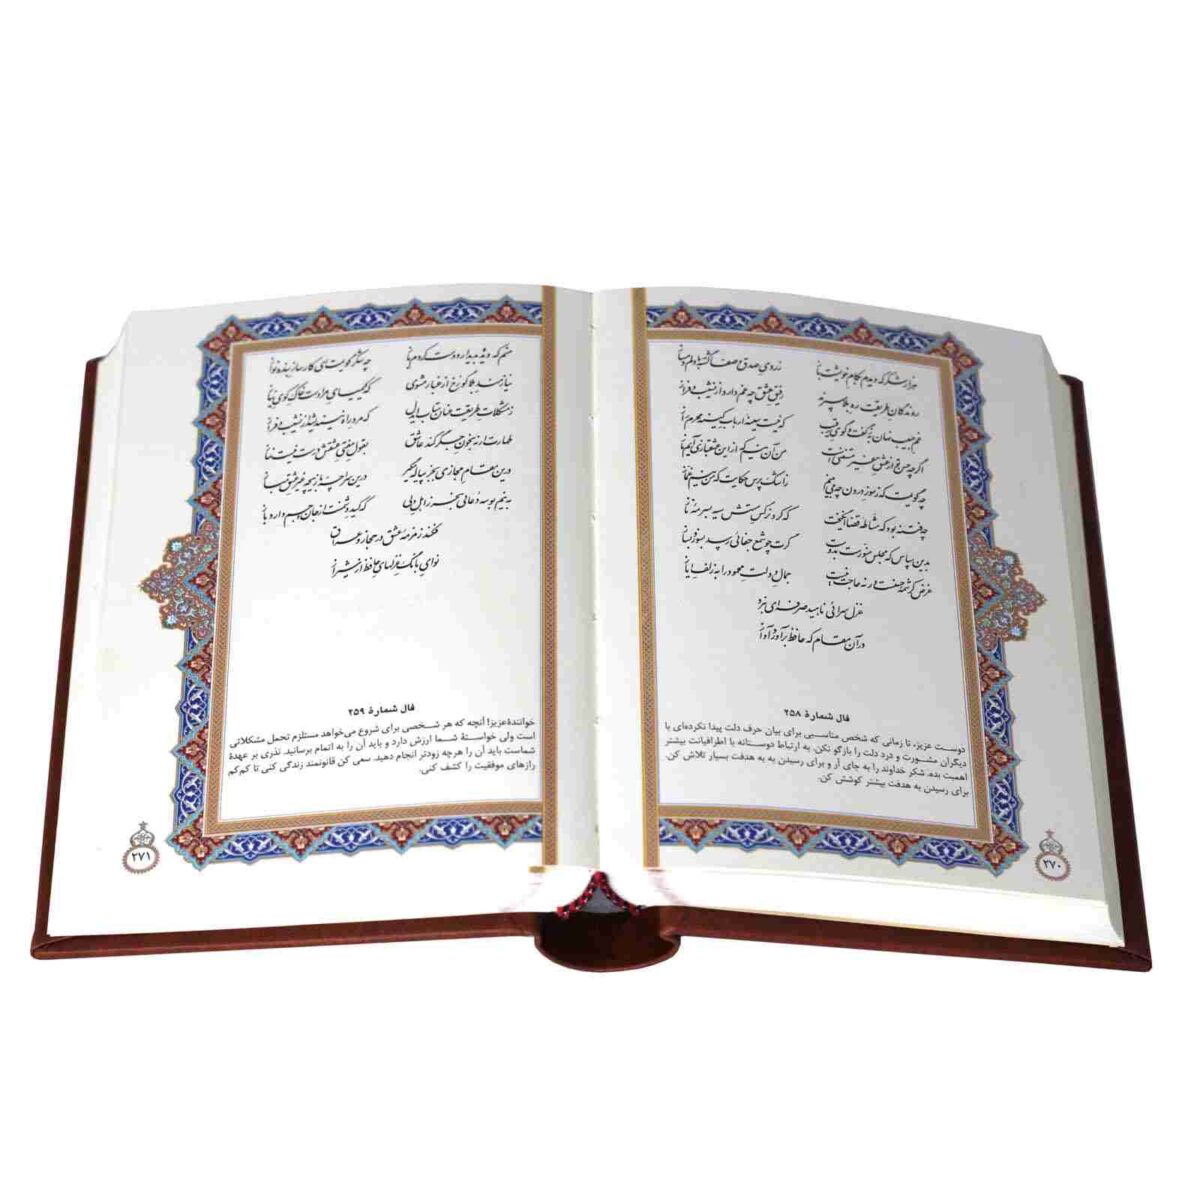 هزار شکر که دیدم به کام خویشت باز ز روی صدق و صفا گشته با دلم دمساز
روندگان طریقت ره بلا سپرند رفیق عشق چه غم دارد از نشیب و فراز
غم حبیب نهان به ز گفت و گوی رقیب که نیست سینه ارباب کینه محرم راز
اگر چه حسن تو از عشق غیر مستغنی است من آن نیم که از این عشقبازی آیم باز
چه گویمت که ز سوز درون چه می‌بینم ز اشک پرس حکایت که من نیم غماز
چه فتنه بود که مشاطه قضا انگیخت که کرد نرگس مستش سیه به سرمه ناز
بدین سپاس که مجلس منور است به دوست گرت چو شمع جفائی رسد بسوز و بساز
غرض کرشمه حسن است ور نه حاجت نیست جمال دولت محمود را به زلف ایاز
غزل سرائی ناهید صرفه‌ای نبرد
در آن مقام که حافظ برآورد آواز
فال شمارهٔ ۲۵۸
دوست عزیز، تا زمانی که شخص مناسبی برای بیان حرف دلت پیدا نکرده‌ای با
دیگران مشورت و درد دلت را بازگو نکن. به ارتباط دوستانه با اطرافیانت بیشتر
اهمیت بده. شکر خداوند را به جای آر و برای رسیدن به به هدفت بسیار تلاش کن.
برای رسیدن به هدفت بیشتر کوشش کن.
۲۷۰
منم که دیده به دیدار دوست کردم باز چه شکر گویمت ای کارساز بنده نواز
نیازمند بلا گو رخ از غبار مشوی که کیمیای مراد است خاک کوی نیاز
ز مشکلات طریقت عنان متاب ای دل که مرد راه نیندیشد از نشیب و فراز
طهارت ار نه به خون جگر کند عاشق به قول مفتی عشقش درست نیست نماز
درین مقام مجازی بجز پیاله مگیر درین سراچه بازیچه غیر عشق مباز
به نیم بوسه دعائی بخر ز اهل دلی که کید دشمنت از جان و جسم دارد باز
فکند زمزمه عشق در حجاز و عراق
نوای بانگ غزلهای حافظ از شیراز
فال شمارهٔ ۲۵۹
خوانندهٔ عزیز! آنچه که هر شخصی برای شروع می‌خواهد مستلزم تحمل مشکلاتی
است ولی خواستهٔ شما ارزش دارد و باید آن را به اتمام برسانید. نذری بر عهدهٔ
شماست باید آن را هرچه زودتر انجام دهید. سعی کن قانونمند زندگی کنی تا کم‌کم
رازهای موفقیت را کشف کنی.
۲۷۱